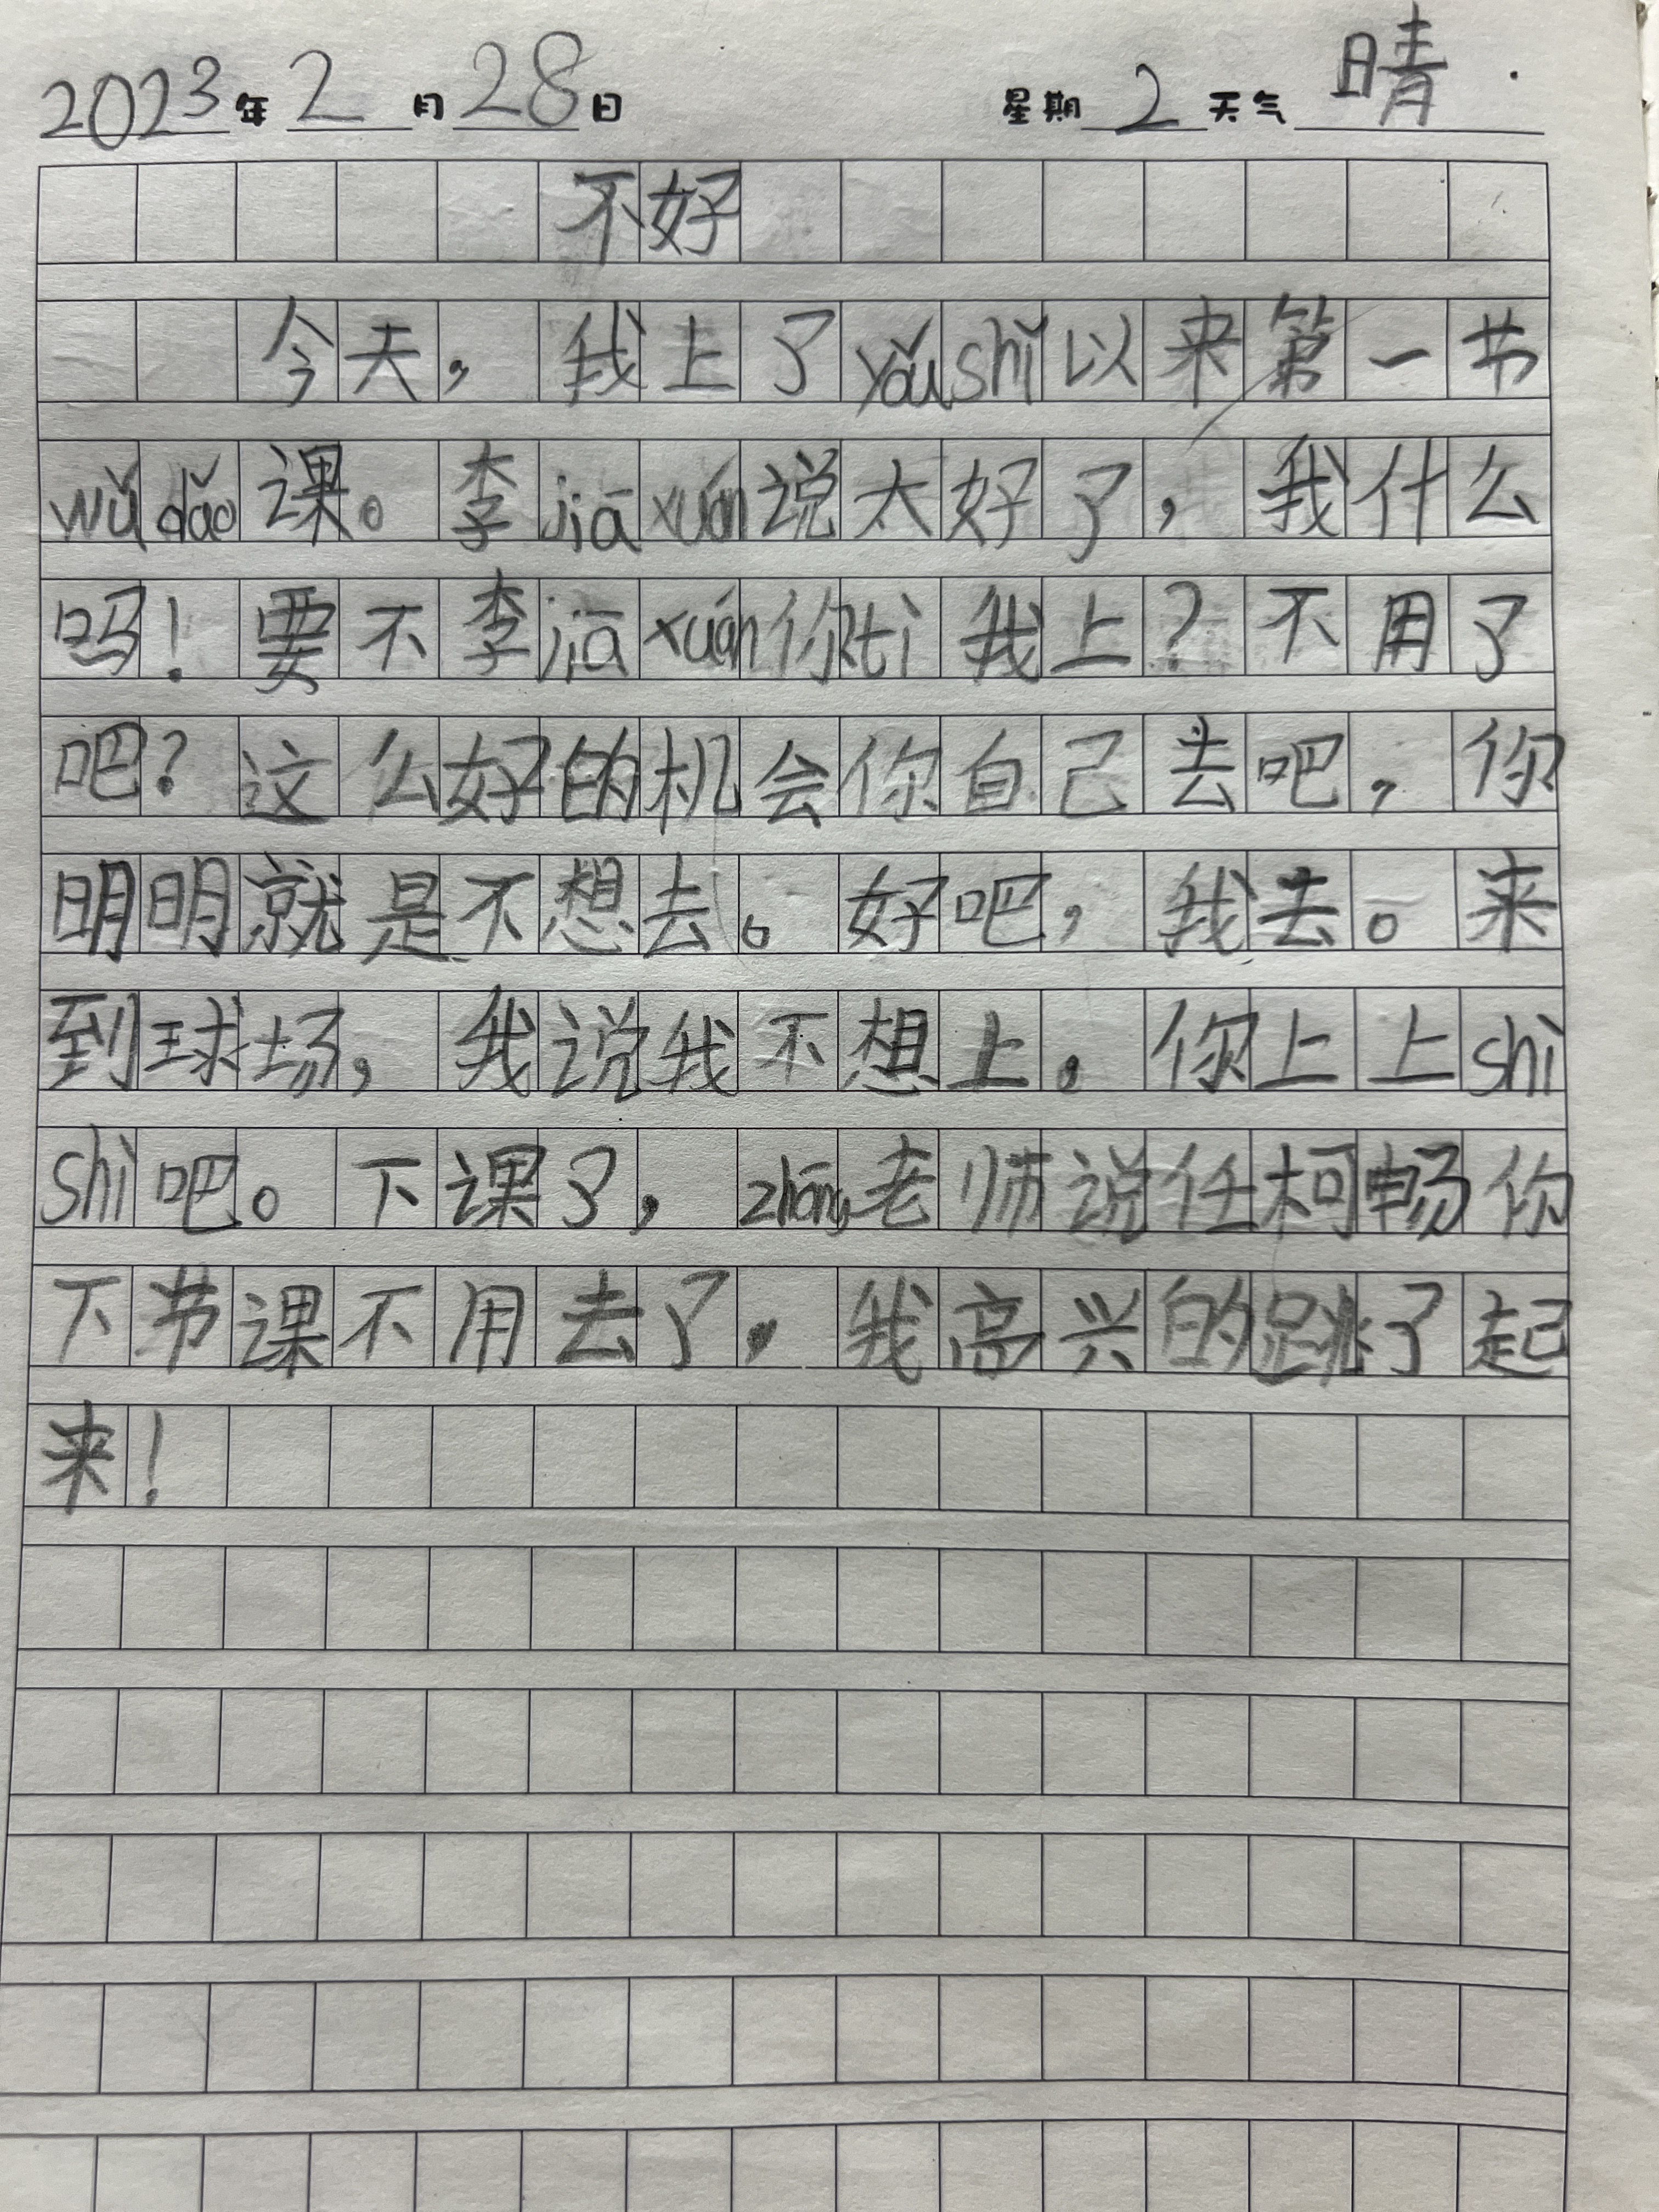 2023年2月28日 星期2天气晴.
不好
今天，我上了yǒushǐ以来第一节
wǔdǎo课。李jiāxuán说太好了，我什么
吗！要不李jiāxuán你tì我上？不用了
吧？这么好的机会你自己去吧，你
明明就是不想去。好吧，我去。来
到球场，我说我不想上。你上上shì
shì吧。下课了，zhāng老师说任柯畅你
下节课不用去了。我高兴的跳了起
来！